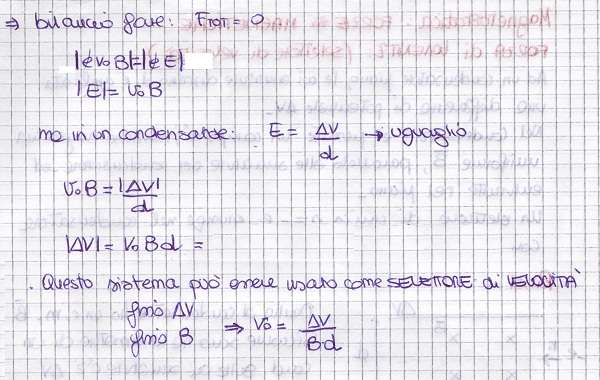 ⇒ bilancio forze: FTOT = 0
|e v₀ B|=|e E|
|E|= v₀ B
ma in un condensatore: E = ΔV/d → uguaglio
v₀ B = |ΔV|/d
|ΔV| = v₀ B d =
. Questo sistema può essere usato come SELETTORE di VELOCITÀ
fisso ΔV
fisso B ⇒ v₀ = ΔV/Bd